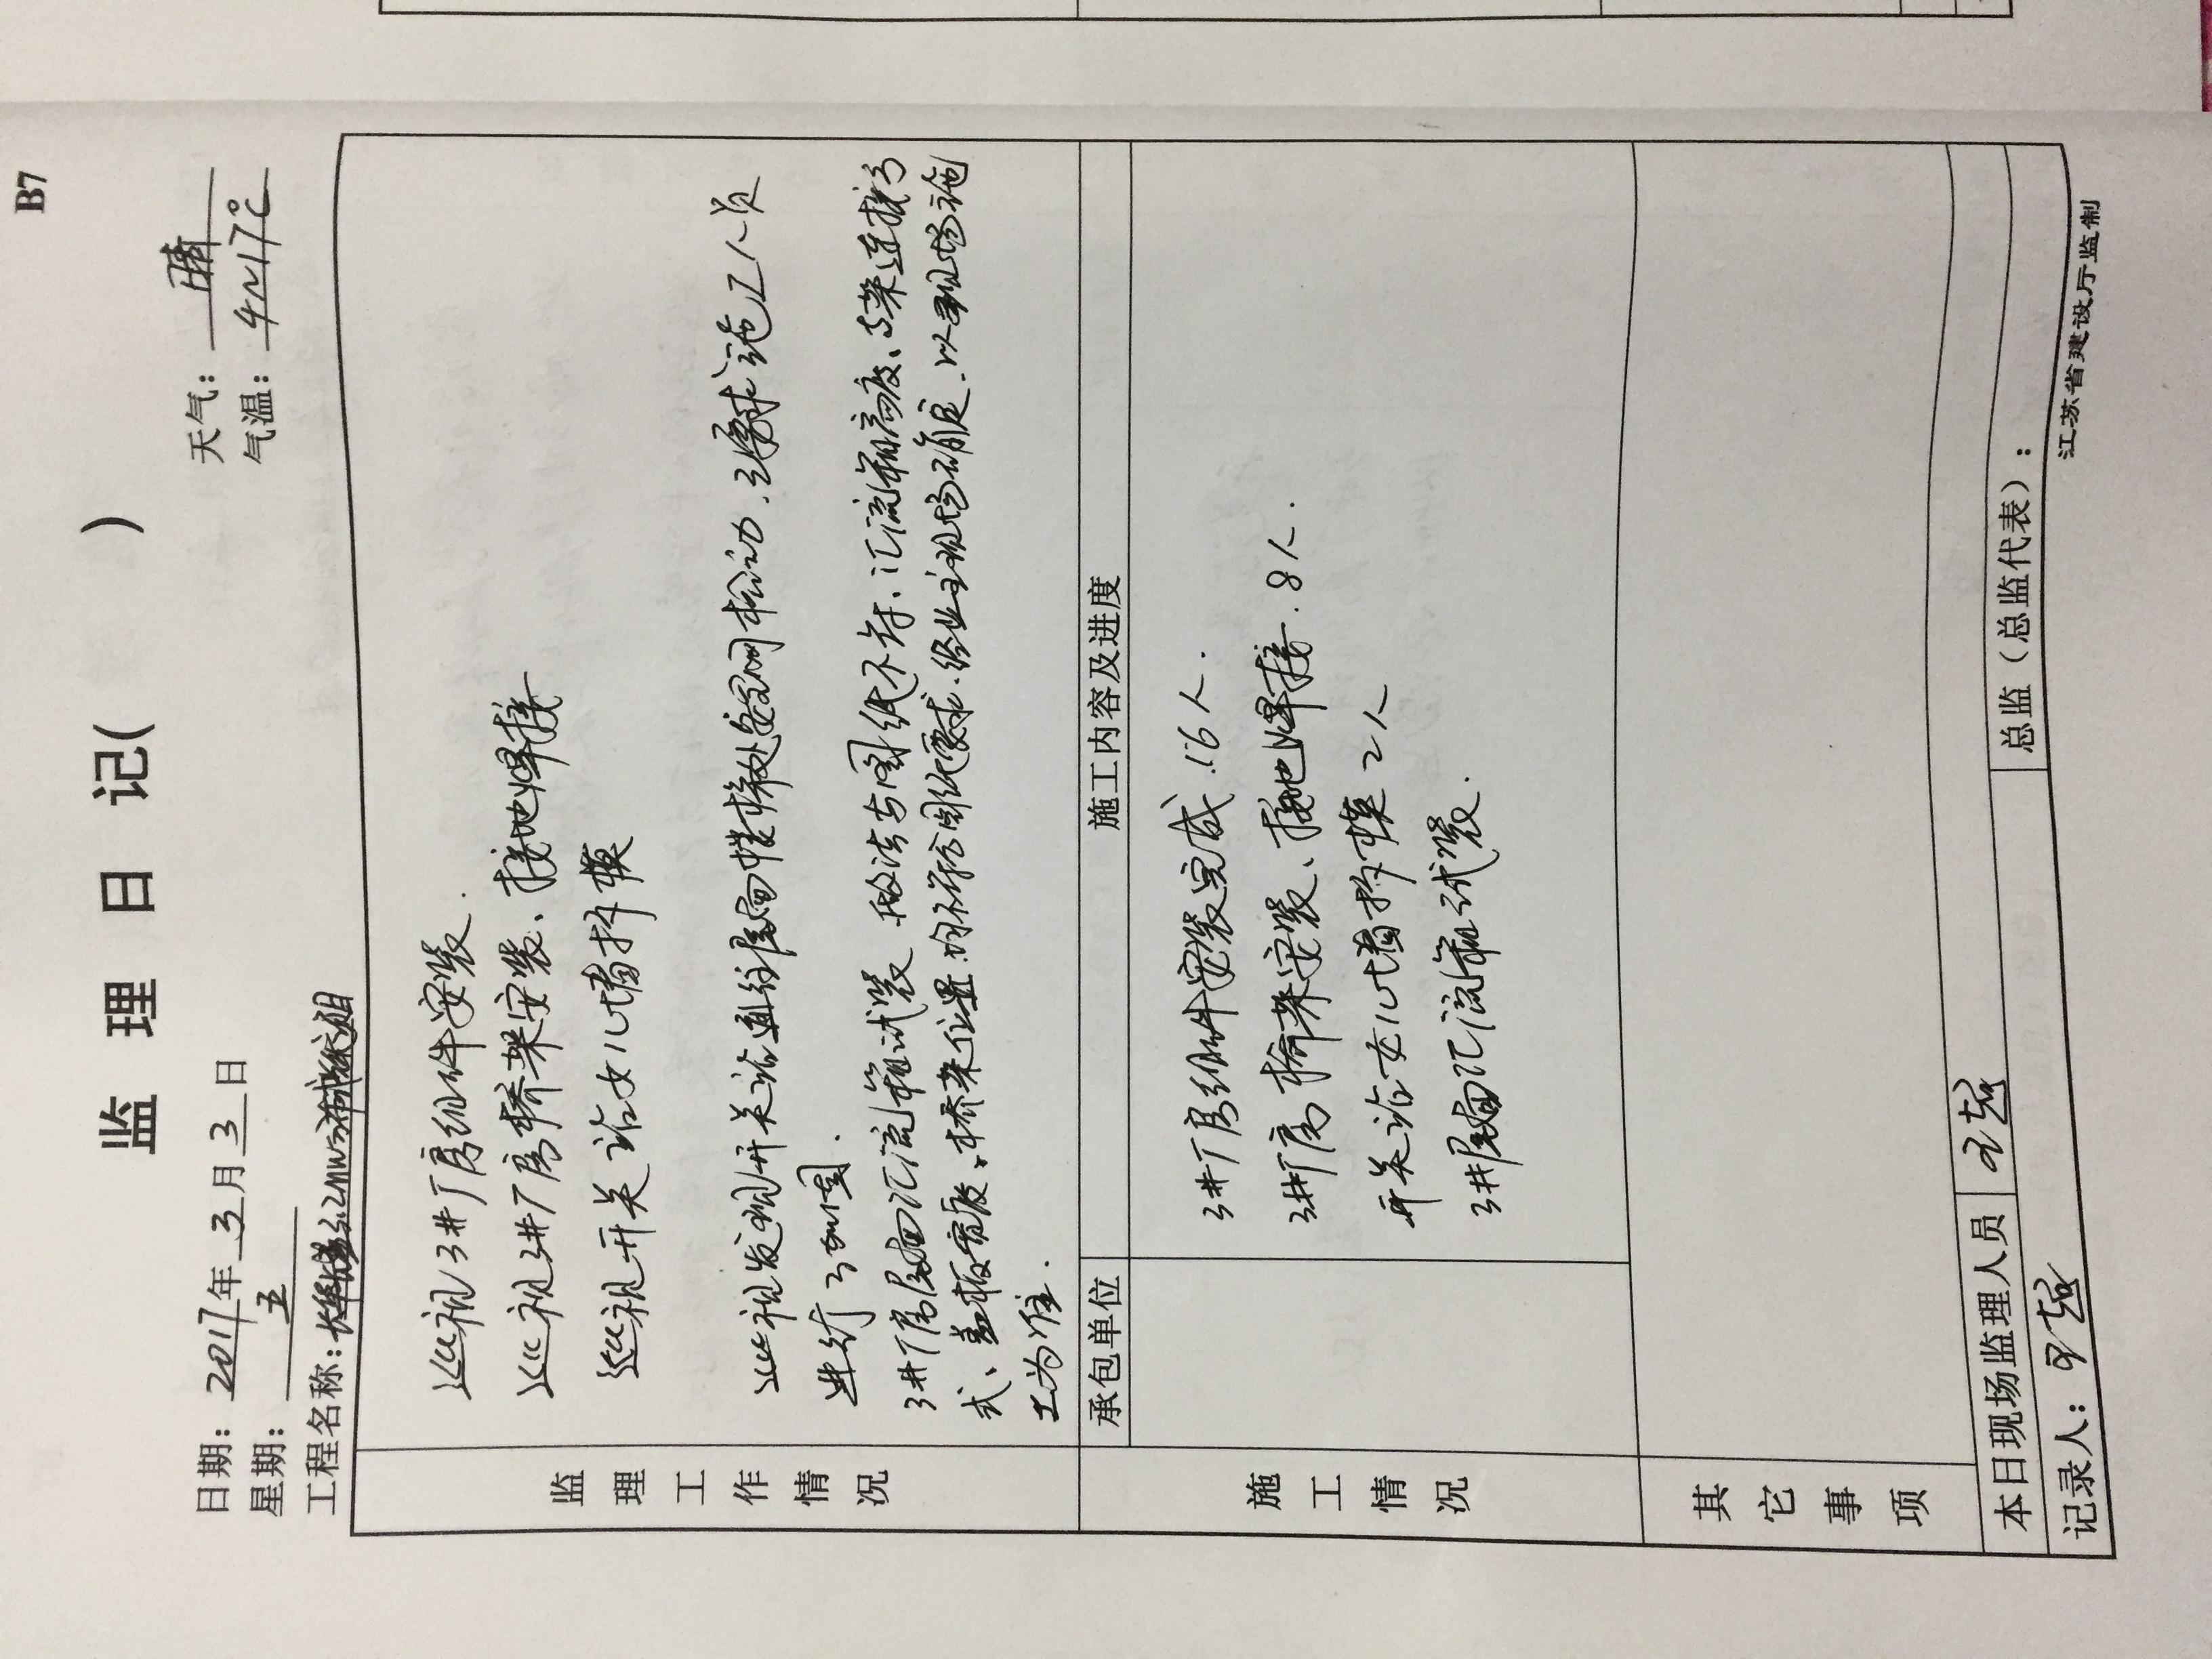 B7
监 理 日 记( )
日期：2017年3月3日
天气：晴
星期：五
气温：4~17℃
工程名称：3.2MW
监理工作情况
巡视3#厂房组件安装.
巡视3#厂房桥架安装、接地焊接
巡视开关站女儿墙拆模
巡视发现开关站通往屋面爬梯处松动,要求施工人员
进行了加固.
3#厂房屋面汇流箱试装 做法与图纸不符、汇流箱高度、与桥架连接方
式、盖板宽度、桥架位置均不符合图纸要求.经业主现场确定.以现场施
工为准.
施工情况
承包单位
施工内容及进度
3#厂房组件安装完成.16人.
3#厂房桥架安装、接地焊接.8人.
开关站女儿墙拆模2人
3#屋面汇流箱试装.
其它事项
本日现场监理人员
总监（总监代表）：
记录人：
江苏省建设厅监制